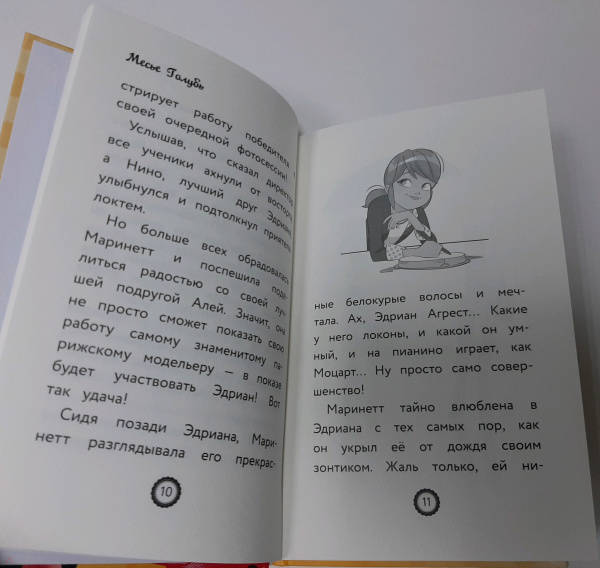 Месье Голубь
стрирует работу победителя в
своей очередной фотосессии!
Услышав, что сказал директор,
все ученики ахнули от восторга,
а Нино, лучший друг Эдриана,
улыбнулся и подтолкнул приятеля
локтем.
Но больше всех обрадовалась
Маринетт и поспешила поде-
литься радостью со своей луч-
шей подругой Алей. Значит, она
не просто сможет показать свою
работу самому знаменитому па-
рижскому модельеру — в показе
будет участвовать Эдриан! Вот
так удача!
Сидя позади Эдриана, Мари-
нетт разглядывала его прекрас-
10
ные белокурые волосы и меч-
тала. Ах, Эдриан Агрест... Какие
у него локоны, и какой он ум-
ный, и на пианино играет, как
Моцарт... Ну просто само совер-
шенство!
Маринетт тайно влюблена в
Эдриана с тех самых пор, как
он укрыл её от дождя своим
зонтиком. Жаль только, ей ни-
11